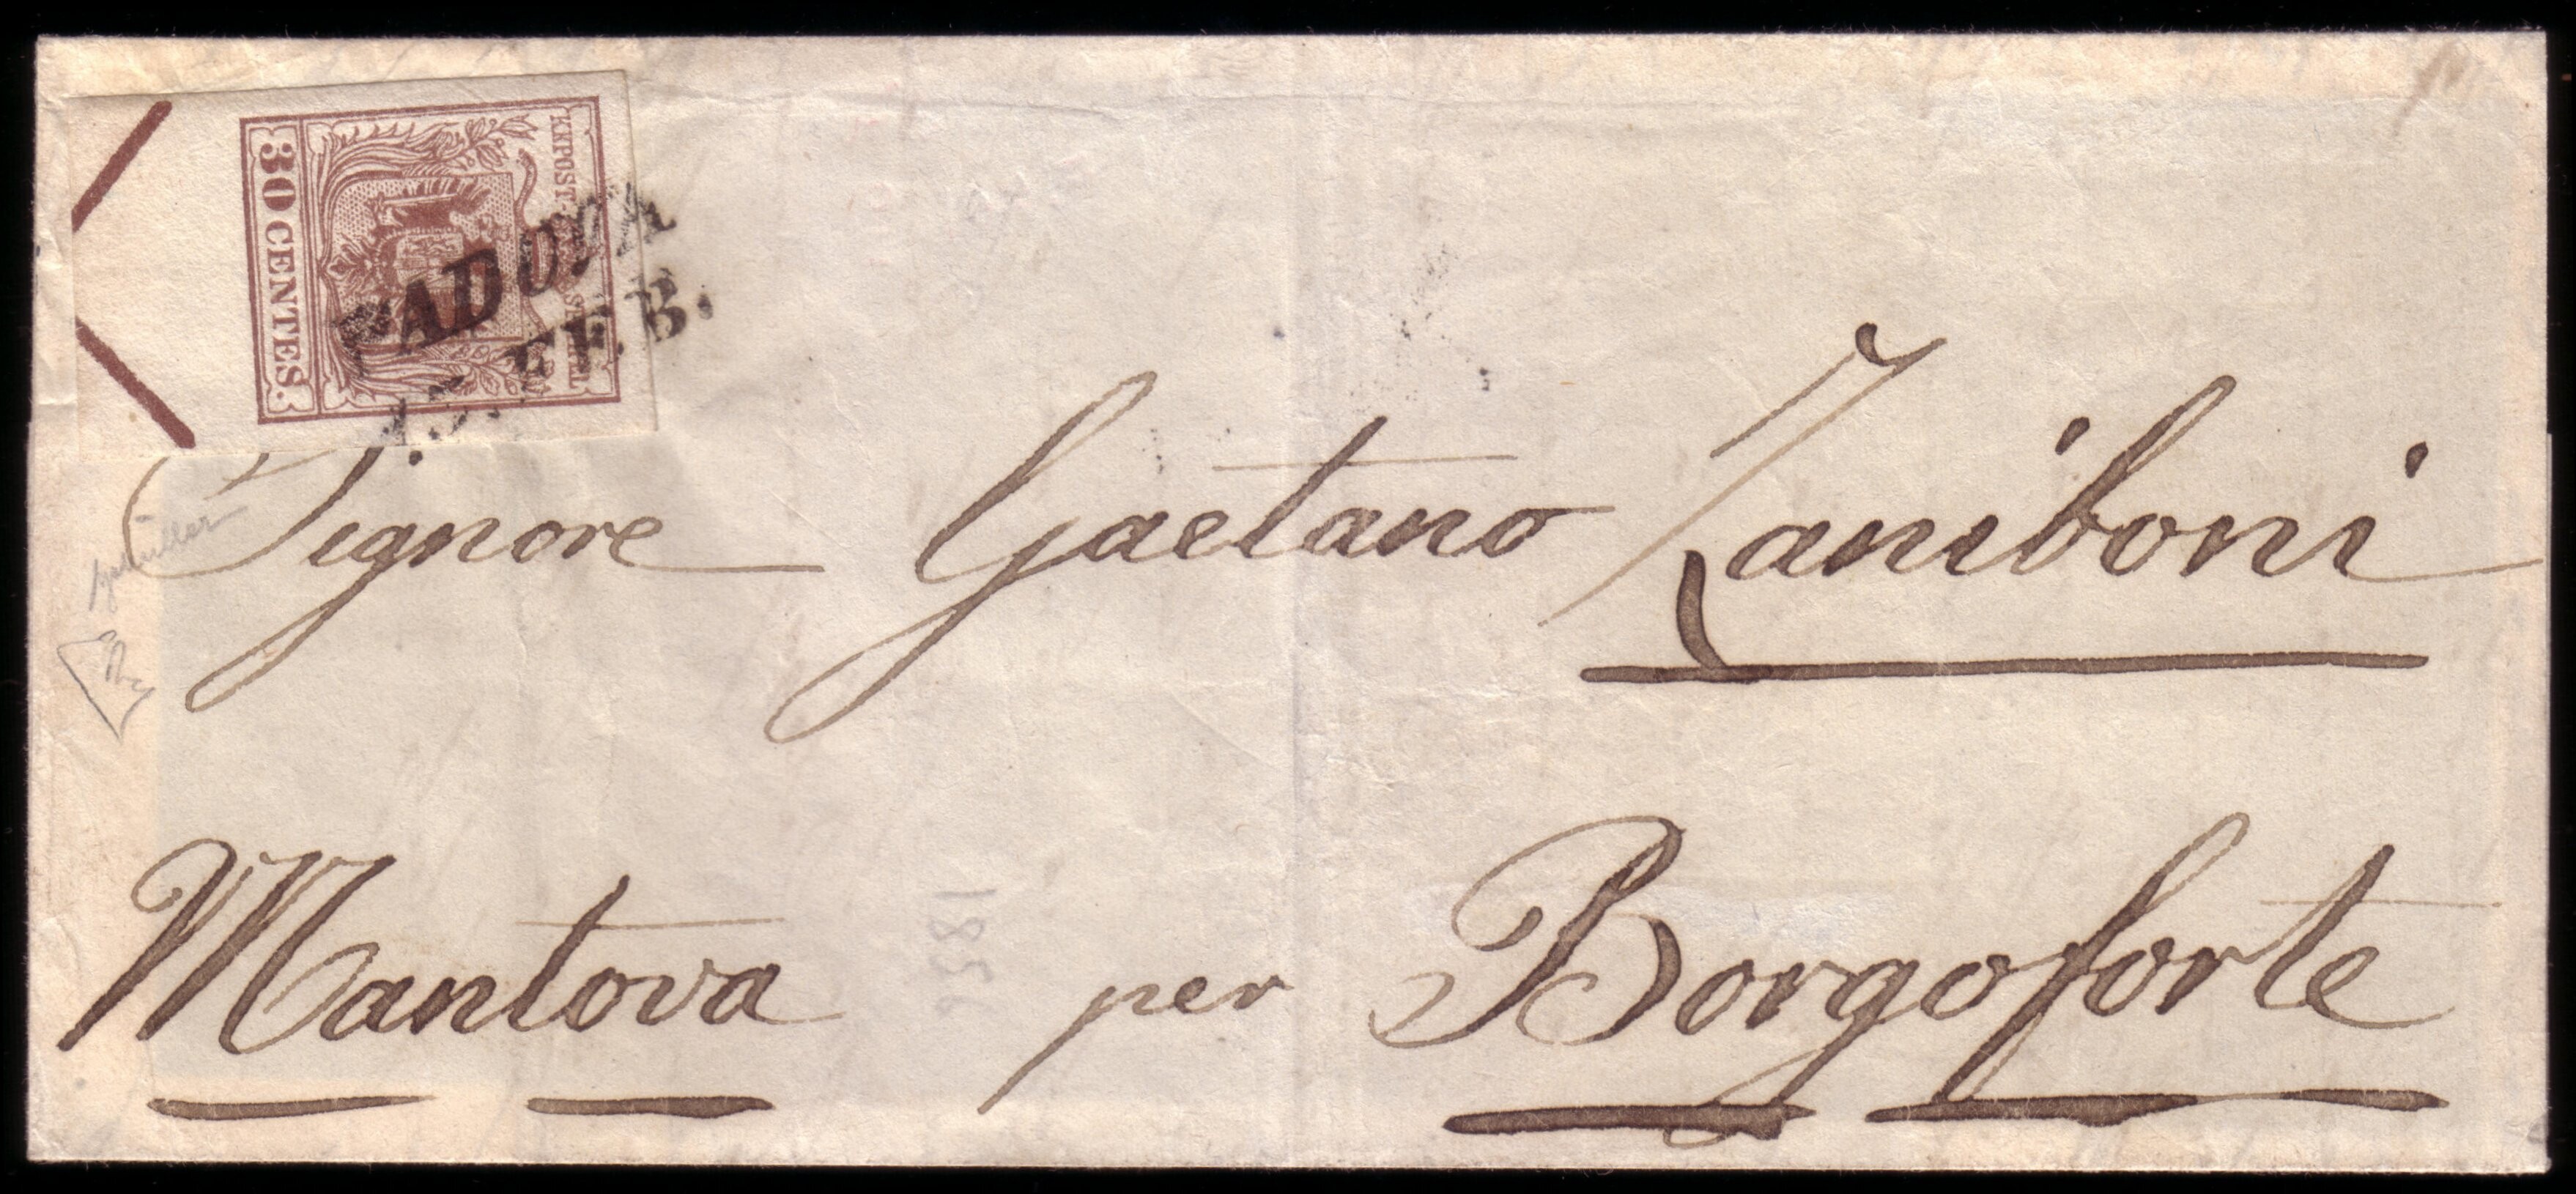 KKPOST-STEMPEL
30 CENTES.
PADOVA
15. FEB.
Signore Gaetano Zaniboni
Mantova per Borgoforte